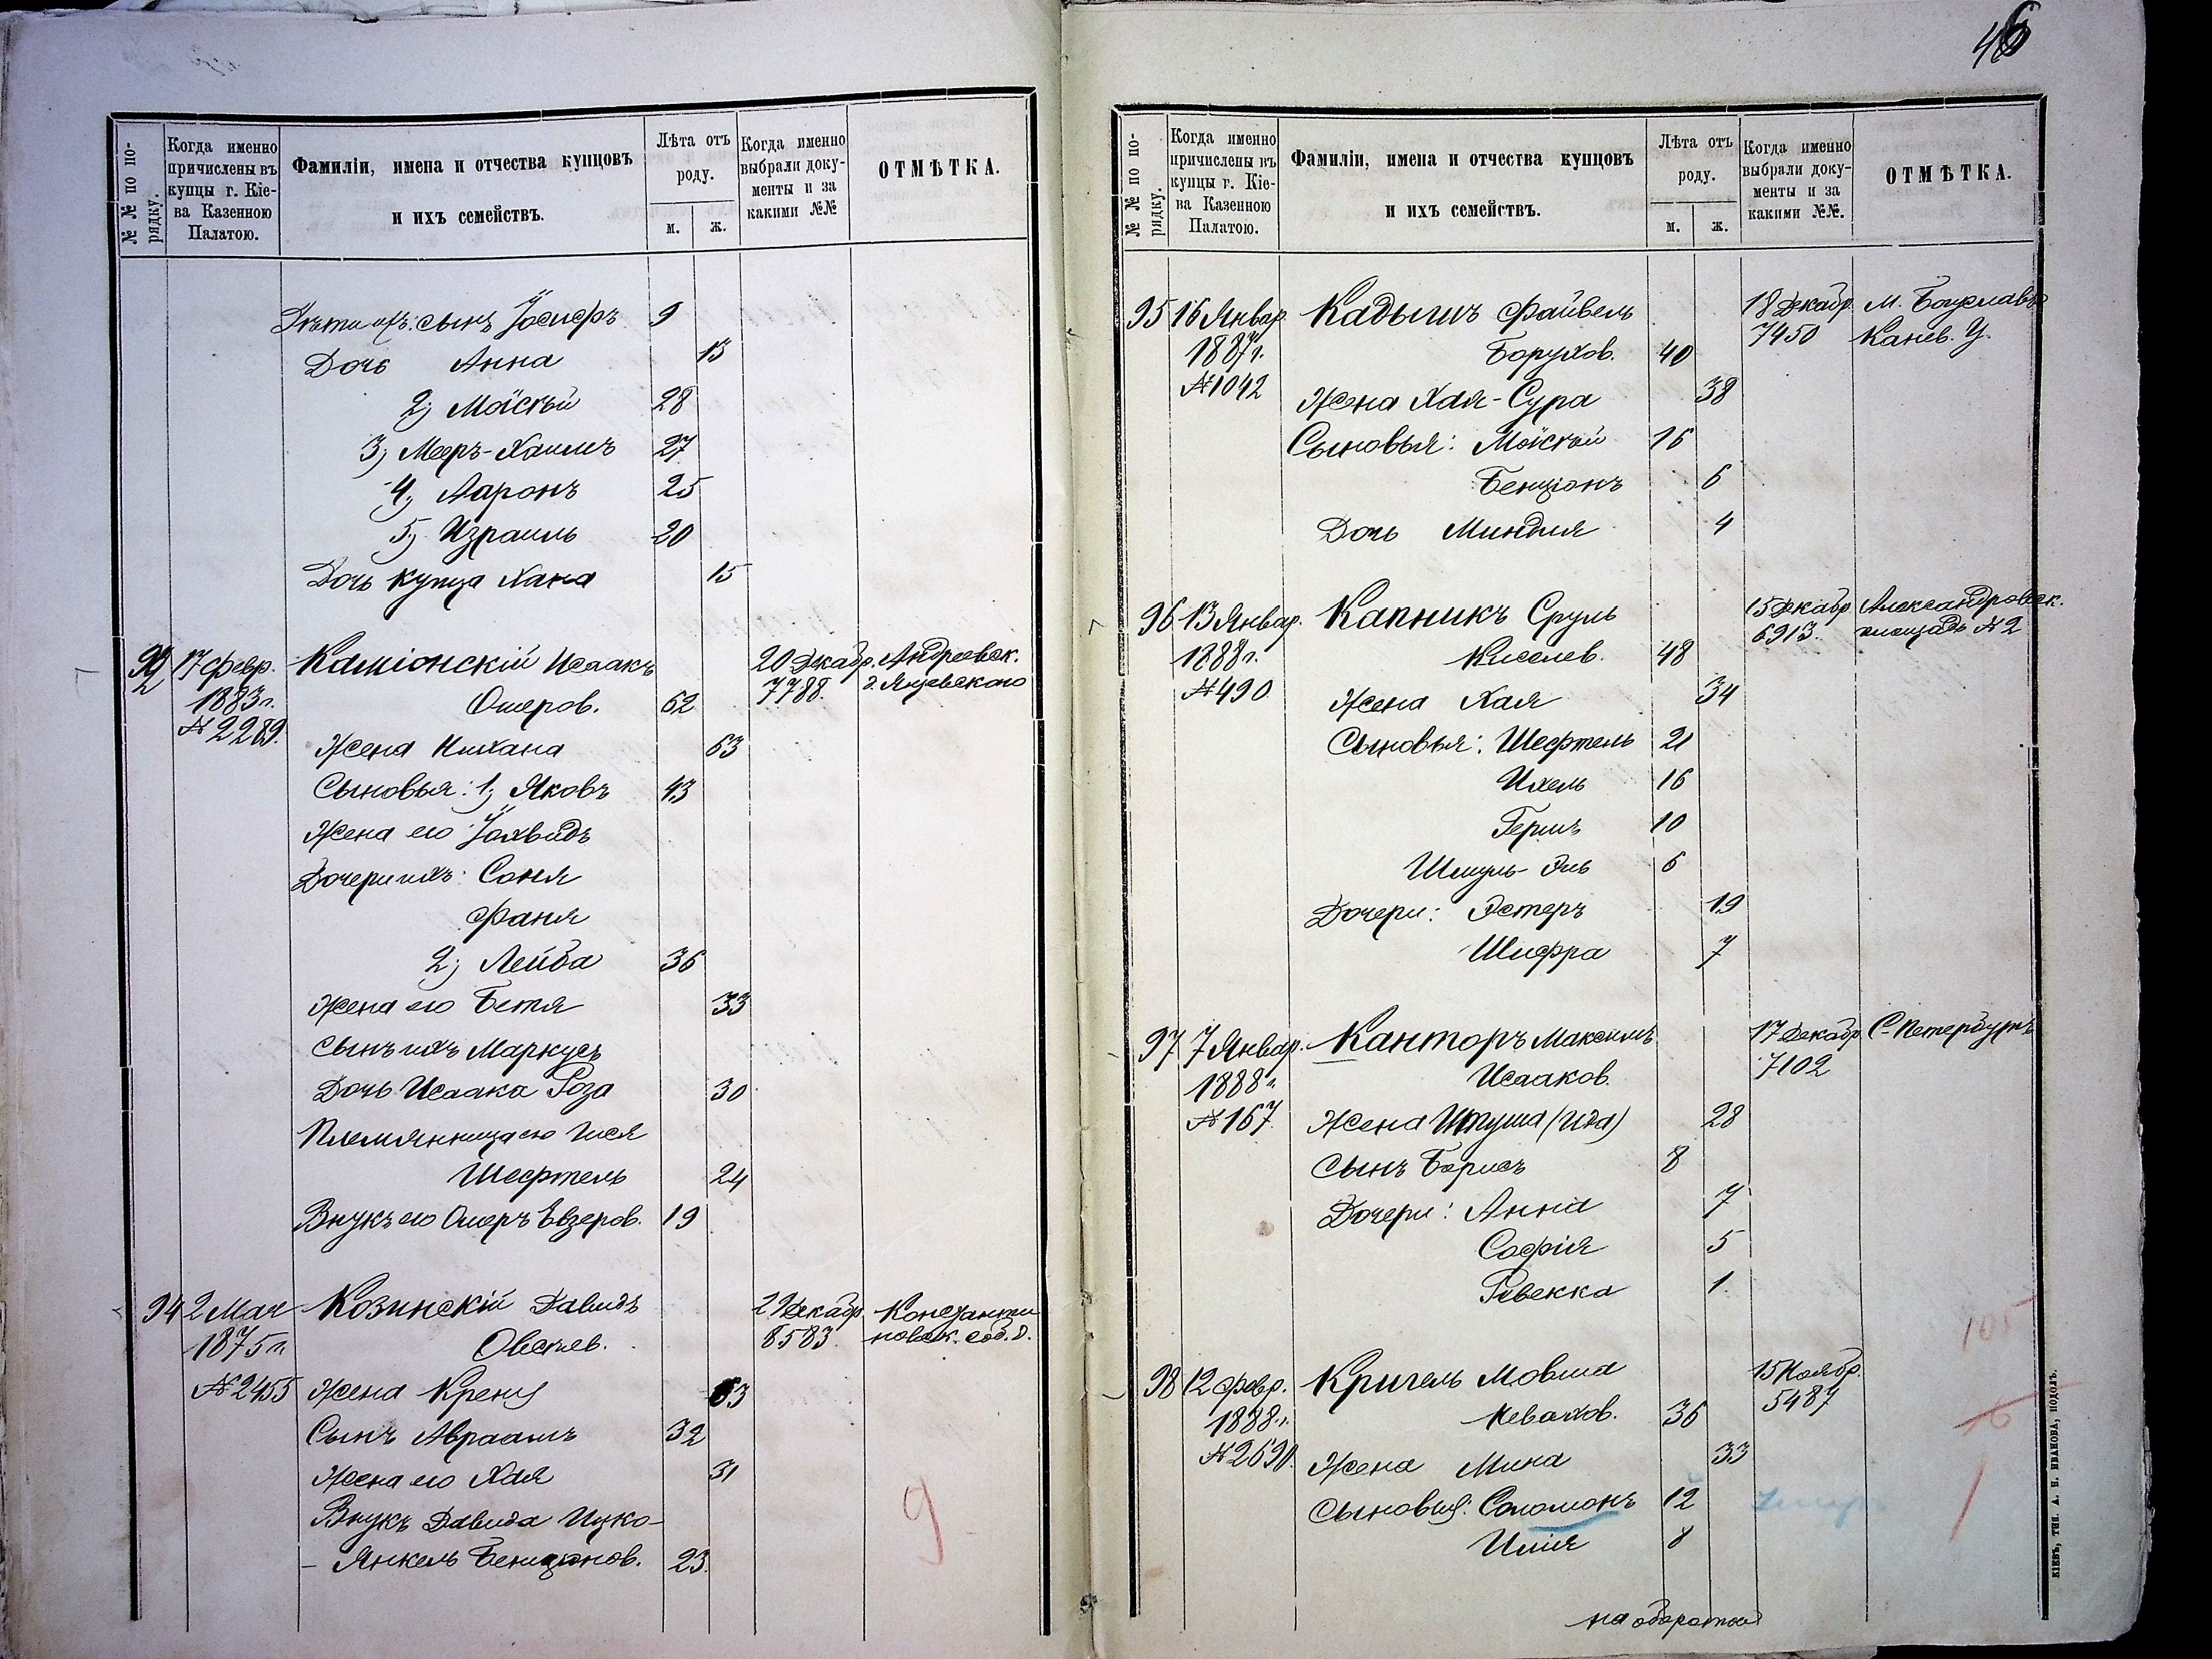 46
№ № по по-
рядку.
Когда именно
причислены въ
купцы г. Кіе-
ва Казенною
Палатою.
Фамиліи, имена и отчества купцовъ
и ихъ семействъ.
Лѣта отъ
роду.
м. ж.
Когда именно
выбрали доку-
менты и за
какими №№
ОТМѢТКА.
Дѣти его: сынъ Іосифъ 9
Дочь Анна 13
2) Мойсей 28
3) Мееръ-Хаимъ 27
4) Ааронъ 25
5) Израиль 20
Дочь купца Хана 15
17 февр. Каміонскій Исаакъ 20 Декабр. Андреевск.
1883 г. Ошеров. 62 7788. д. Яцевского
№ 2289.
Жена Нихана 63
Сыновья: 1) Яковъ 43
Жена его Іохвидъ
Дочери ихъ: Соня
Фаня
2) Лейба 36
Жена его Бетя 33
Сынъ ихъ Маркусъ
Дочь Исаака Роза 30
Племянница его Гися
Шефтель 24
Внукъ его Ошеръ Евзеров. 19
94 2 Мая Козинскій Давидъ 29 Декабр. Константи
1875 г. Овсѣев. 8583 новск. соб. д.
№ 2455 Жена Крейня 63
Сынъ Авраамъ 32
Жена его Хая 31
Внукъ Давида Ицко-
- Янкель Бенціонов. 23.
9
№ № по по-
рядку.
Когда именно
причислены въ
купцы г. Кіе-
ва Казенною
Палатою.
Фамиліи, имена и отчества купцовъ
и ихъ семействъ.
Лѣта отъ
роду.
м. ж.
Когда именно
выбрали доку-
менты и за
какими №№.
ОТМѢТКА.
95 16 Январ. Кадышъ Файвель 18 Декабр. М. Богуславъ
1887 г. Борухов. 40 7450 Канев. У.
№ 1042 Жена Хая-Сура 38
Сыновья: Мойсей 16
Бенціонъ 6
Дочь Миндля 4
96 13 Январ. Капникъ Сруль 15 Декабр. Александровск.
1888 г. Киселев. 48 6913. площадь № 2
№ 490 Жена Хая 34
Сыновья: Шефтель 21
Ихель 16
Гершъ 10
Шмуль-Эль 6
Дочери: Эстеръ 19
Шифра 7
97 7 Январ. Канторъ Максимъ 17 Декабр. С-Петербургъ
1888 г. Исааков. 7102
№ 167 Жена Итуша (Ида) 28
Сынъ Борисъ 8
Дочери: Анна 7
Софія 5
Ревекка 1.
105
98 12 февр. Кригель Мовша 15 Ноябр.
1888 г. Невахов. 36 5487
№ 2690. Жена Мина 33
Сыновья: Соломонъ 12
Илія 8
на оборотѣ
КІЕВЪ, ТИП. А. Н. ИВАНОВА, ПОДОЛЪ.